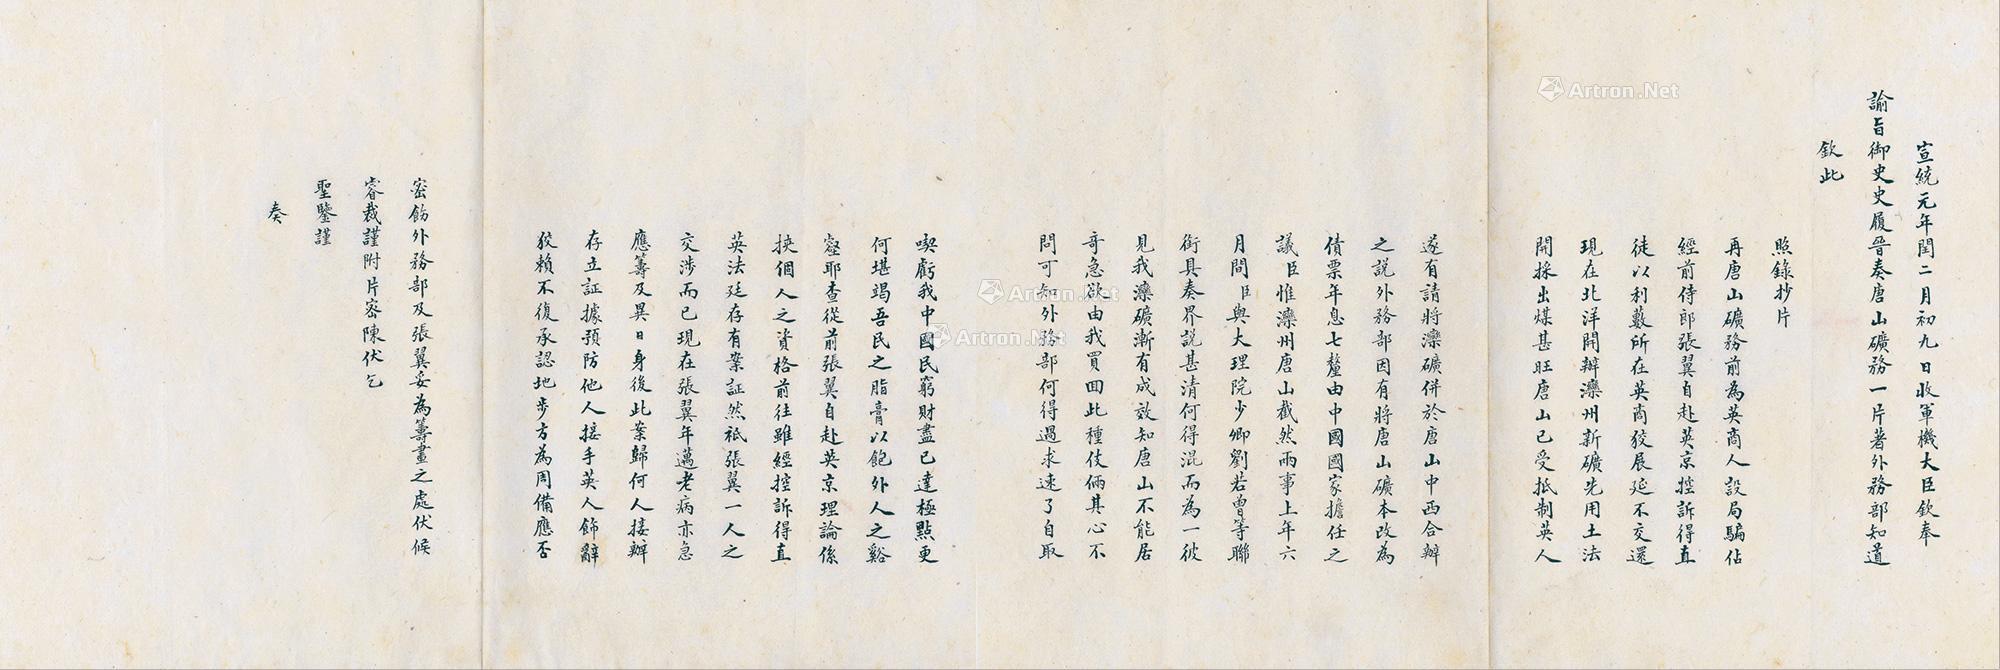 宣統元年閏二月初九日收軍機大臣欽奉
諭旨御史史履晉奏唐山礦務一片著外務部知道
欽此
照錄抄片
再唐山礦務前為英商人設局騙佔
經前侍郎張翼自赴英京控訴得直
徒以利藪所在英商狡展延不交還
現在北洋開辦灤州新礦先用土法
開採出煤甚旺唐山已受抵制英人
遂有請將灤礦併於唐山中西合辦
之說外務部因有將唐山礦本改為
債票年息七釐由中國國家擔任之
議臣惟灤州唐山截然兩事上年六
月間臣與大理院少卿劉若曾等聯
銜具奏界說甚清何得混而為一彼
見我灤礦漸有成效知唐山不能居
奇急欲由我買回此種伎倆其心不
問可知外務部何得過求速了自取
喫虧我中國民窮財盡已達極點更
何堪竭吾民之脂膏以飽外人之谿
壑耶查從前張翼自赴英京理論係
挾個人之資格前往雖經控訴得直
英法廷存有案証然祇張翼一人之
交涉而已現在張翼年邁老病亦急
應籌及異日身後此案歸何人接辦
存立証據預防他人接手英人飾辭
狡賴不復承認地步方為周備應否
密飭外務部及張翼妥為籌畫之處伏候
睿裁謹附片密陳伏乞
聖鑒謹
奏
Artron.Net
Artron.Net
Artron.Net
Artron.Net